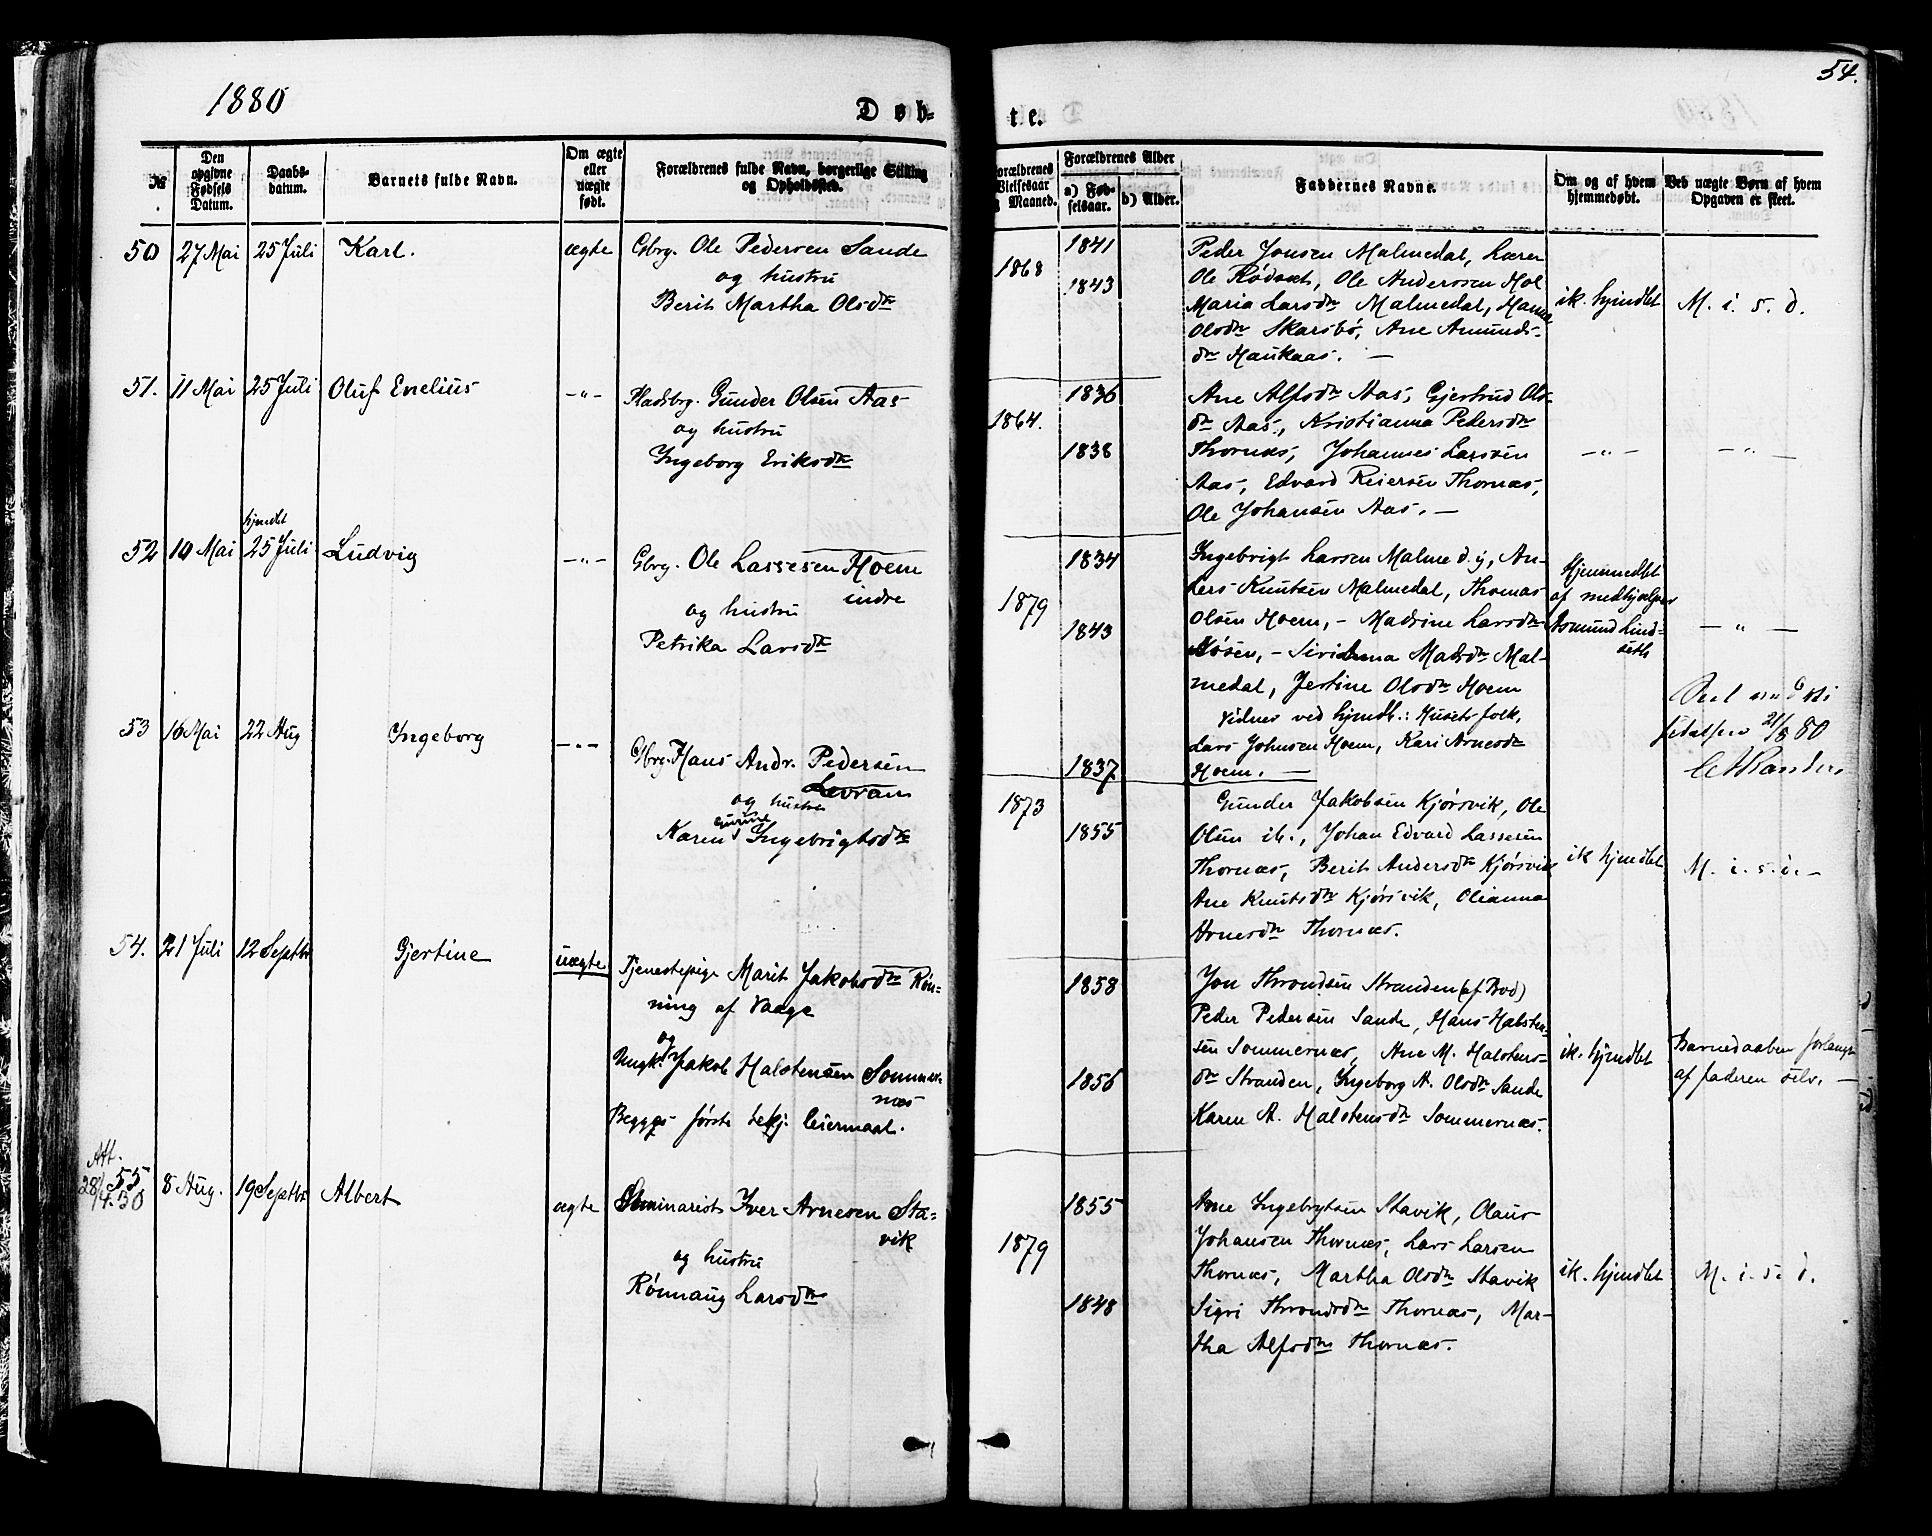 1880
54.
Døb-
te.
№
Den opgivne Fødsels Datum.
Daabs-datum.
Barnets fulde Navn.
Om ægte eller uægte født.
Forældrenes fulde Navn, borgerlige Stilling og Opholdssted.
Forældrenes Alder
a) Fød-selsaar.
b) Alder.
Faddernes Navne.
Om og af hvem hjemmedøbt.
Ved uægte Børn af hvem Opgaven er skeet.
50
27 Mai
25 Juli
Karl.
ægte
Gbrg. Ole Pedersen Sande
og hustru
Berit Martha Olsdtr
1868
1841
1843
Peder Jonsen Malmedal, Lærer
Ole Rødset, Ole Anderssen Hol
Maria Larsdtr Malmedal, Hanna
Olsdtr Skarsbø, Ane Amunds-
dtr Haukaas. —
ik. hjmdbt
M. i. s. d.
51.
11 Mai
25 Juli
Oluf Enelius
-"-
Pladsbrg. Gunder Olsen Aas
og hustru
Ingeborg Eriksdtr
1864.
1836
1838
Ane Alfsdtr Aas, Gjertrud Ols-
dtr Aas., Kristianna Pedersdtr
Thornæs, Johannes Larsen
Aas, Edvard Reiersen Thornæs,
Ole Johansen Aas. —
-"-
-"-
52
10 Mai
hjmdbt
25 Juli
Ludvig
-"-
Gbrg. Ole Lassesen Hoem
indre
og hustru
Petrika Larsdtr
1879
1834
1843
Ingebrigt Larsen Malme d. y, An-
ders Knutsen Malmedal, Thomas
Olsen Hoem, - Madsine Larsdtr
Møsen, - Sirianna Madsdtr Mal-
medal, Jertine Olsdtr Hoem
Vidner ved hjmdb.: Husets folk,
Lars Johnsen Hoem, Kari Arnesdtr
Hoem. —
Hjemmedbt
af medhjælper
Asmund Lind-
seth
— " —
21/8 80
53
16 Mai
22 Aug
Ingeborg
-"-
Gbrg. Hans Andr. Pedersen
Levran
og hustru
Gurine
Karen Ingebrigtsdtr
1873
1837
1855
Gunder Jakobsen Kjørsvik, Ole
Olsen ib., Johan Edvard Lassesen
Thornæs, Berit Andersdtr Kjørsvik
Ane Knutsdtr Kjørsvik, Olianna
Arnesdtr Thornæs.
ik hjmdbt
M. i. s. d. —
54.
21 Juli
12 Septbr
Gjertine
uægte
Tjenestepige Marit Jakobsdtr Røn-
ning af Vaage
og
Ungk. Jakob Halstensen Sommer-
næs
Begges første bekj. leiermaal.
1858
1856
Jon Throndsen Stranden (af Bod)
Peder Pedersen Sande, Hans Halsten-
sen Sommernæs, Ane M. Halstens-
dtr Stranden, Ingeborg A. Olsdtr Sande
Karen A. Halstensdtr Sommernæs.
ik. hjmdbt
Barnedaaben forlangt
af faderen selv. —
Att.
28/4.30
55
8 Aug.
19 Septbr
Albert
ægte
Seminarist Iver Arnesen Sta-
vik
og hustru
Rønnaug Larsdtr
1879
1855
1848
Arne Ingebrigtsen Stavik, Olaus
Johansen Thornæs, Lars Larsen
Thornæs, Martha Olsdtr Stavik
Sigri Throndsdtr Thornæs, Mar-
tha Alfsdtr Thornæs.
ik. hjmdbt
M. i. s. d.